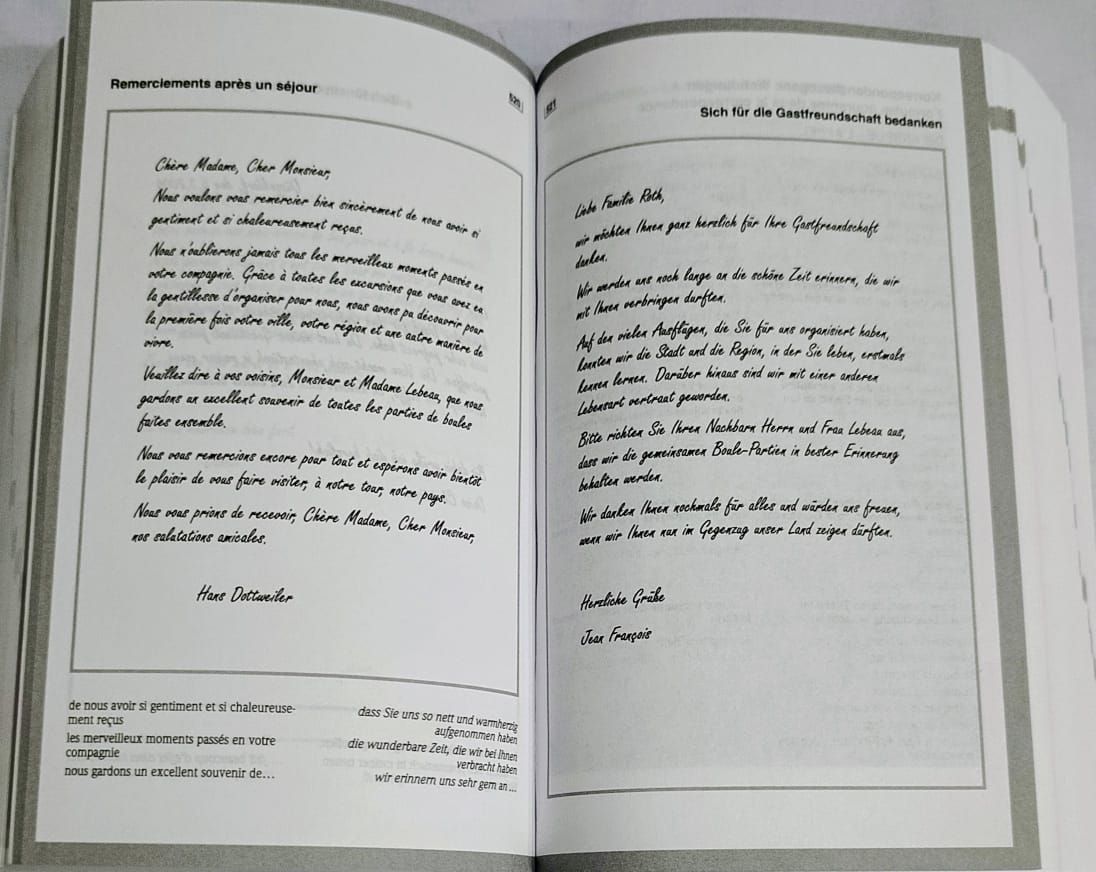 Remerciements après un séjour
520
Chère Madame, Cher Monsieur,
Nous voulons vous remercier bien sincèrement de nous avoir si
gentiment et si chaleureusement reçus.
Nous n'oublierons jamais tous les merveilleux moments passés en
votre compagnie. Grâce à toutes les excursions que vous avez eu
la gentillesse d'organiser pour nous, nous avons pu découvrir pour
la première fois votre ville, votre région et une autre manière de
vivre.
Veuillez dire à vos voisins, Monsieur et Madame Lebeau, que nous
gardons un excellent souvenir de toutes les parties de boules
faites ensemble.
Nous vous remercions encore pour tout et espérons avoir bientôt
le plaisir de vous faire visiter, à notre tour, notre pays.
Nous vous prions de recevoir, Chère Madame, Cher Monsieur,
nos salutations amicales.
Hans Dottweiler
de nous avoir si gentiment et si chaleureuse-
ment reçus
dass Sie uns so nett und warmherzig
aufgenommen haben
les merveilleux moments passés en votre
compagnie
die wunderbare Zeit, die wir bei Ihnen
verbracht haben
nous gardons un excellent souvenir de...
wir erinnern uns sehr gern an ...
521
Sich für die Gastfreundschaft bedanken
Liebe Familie Roth,
wir möchten Ihnen ganz herzlich für Ihre Gastfreundschaft
danken.
Wir werden uns noch lange an die schöne Zeit erinnern, die wir
mit Ihnen verbringen durften.
Auf den vielen Ausflügen, die Sie für uns organisiert haben,
konnten wir die Stadt und die Region, in der Sie leben, erstmals
kennen lernen. Darüber hinaus sind wir mit einer anderen
Lebensart vertraut geworden.
Bitte richten Sie Ihren Nachbarn Herrn und Frau Lebeau aus,
dass wir die gemeinsamen Boule-Partien in bester Erinnerung
behalten werden.
Wir danken Ihnen nochmals für alles und würden uns freuen,
wenn wir Ihnen nun im Gegenzug unser Land zeigen dürften.
Herzliche Grüße
Jean François